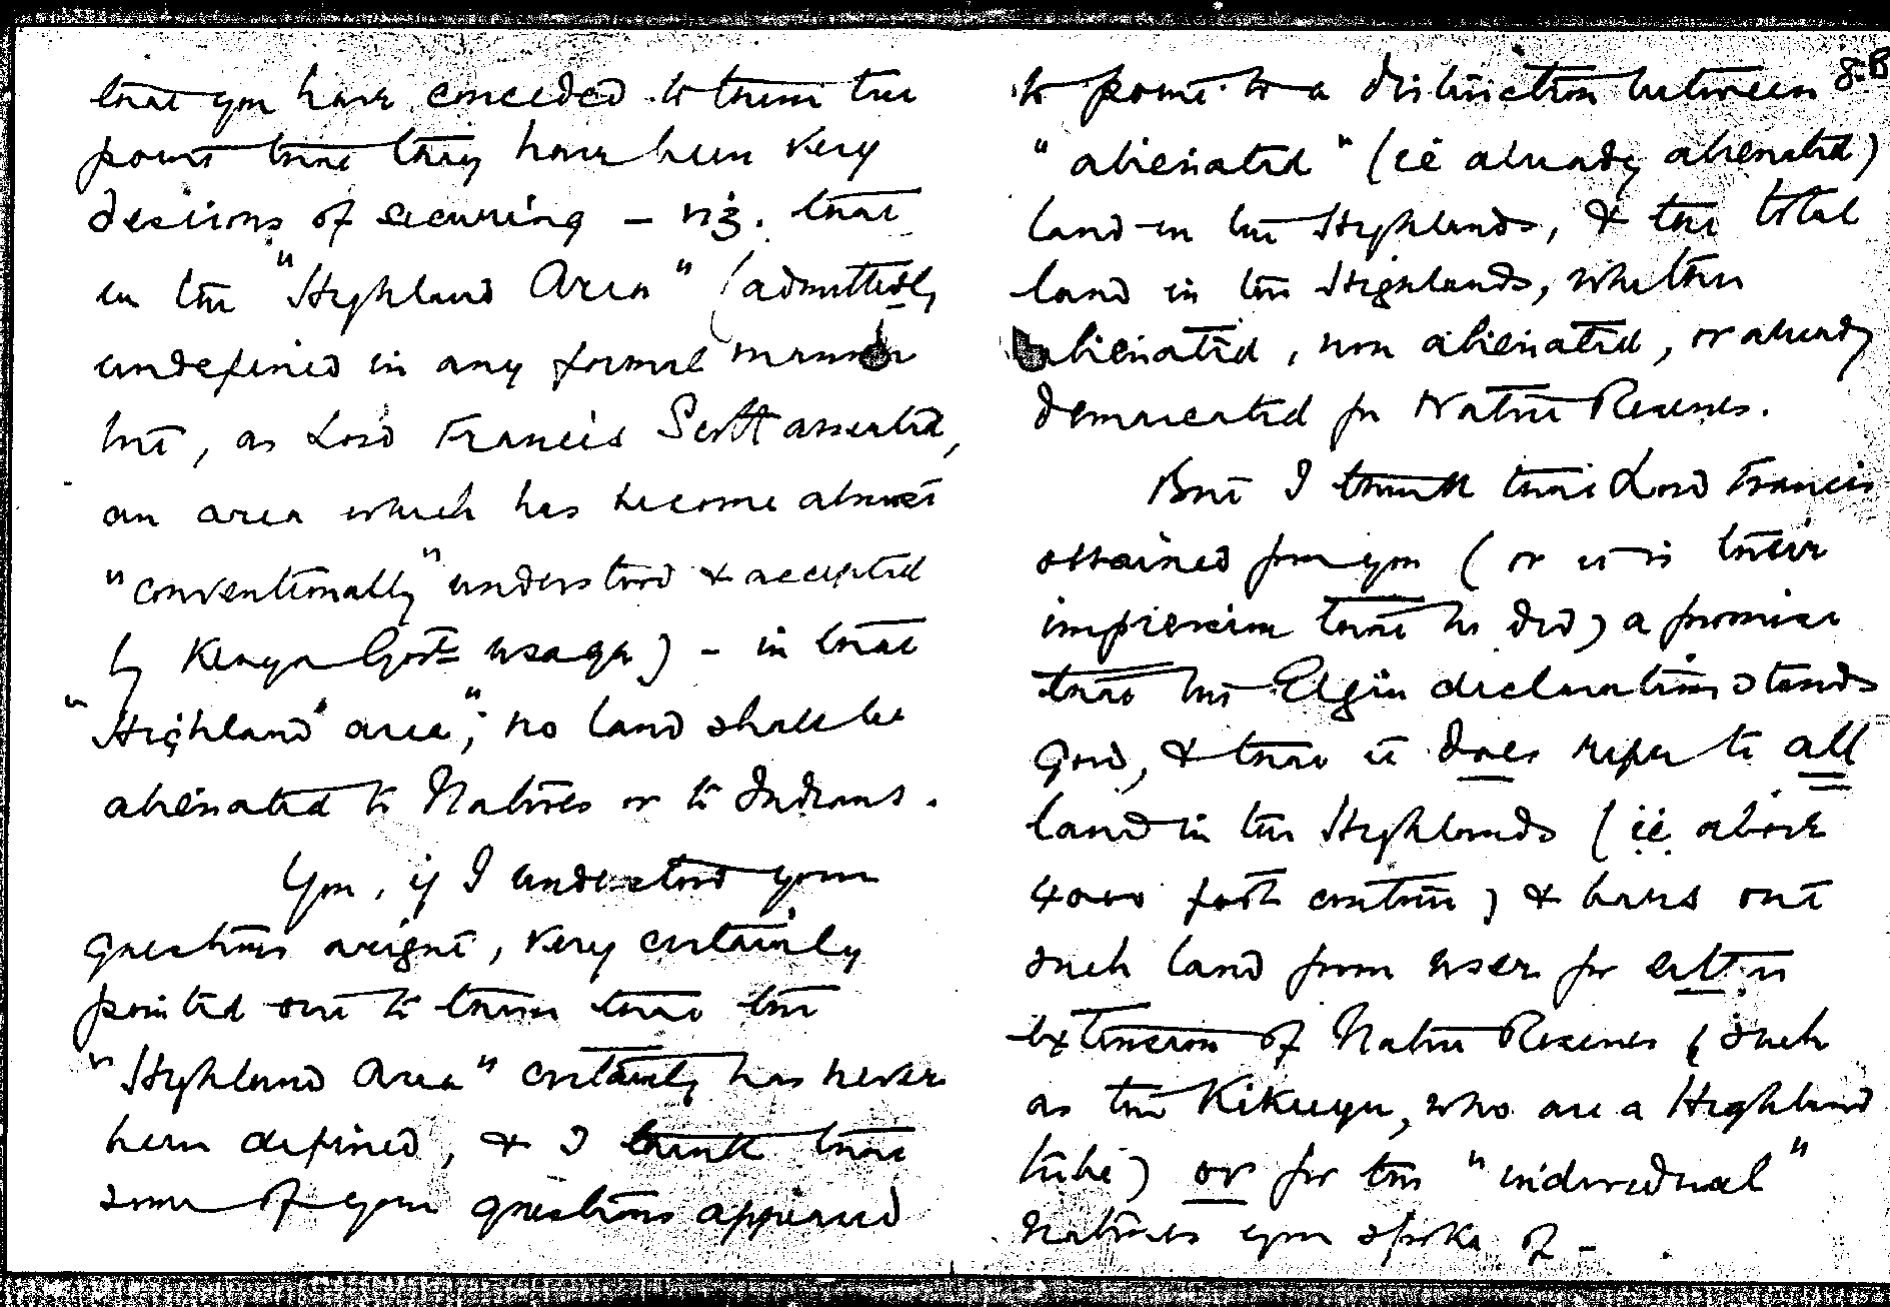 that you have conceded to them the
point that they have been very
desirous of securing – viz. that
in the "Highland Area" (admittedly
undefined in any formal manner
but, as Lord Francis Scott asserted,
an area which has become almost
"conventionally" understood & accepted
by Kenya Govt usage) – in that
"Highland area", no land shall be
alienated to Natives or to Indians.
You, if I understood your
questions aright, very certainly
pointed out to them that the
"Highland Area" certainly has never
been defined, & I think that
some of your questions appeared
8B
to point to a distinction between
"alienated" (ie already alienated)
land in the Highlands, & the total
land in the Highlands, whether
alienated, non alienated, or already
demarcated for Native Reserves.
But I think that Lord Francis
obtained from you (or it is their
impression that he did) a promise
that the Elgin declaration stands
good, & that it does refer to all
land in the Highlands (ie above
4000 foot contour) & bars out
such land from user for either
extension of Native Reserves (such
as the Kikuyu, who are a Highland
tribe) or for the "individual"
natives you spoke of –